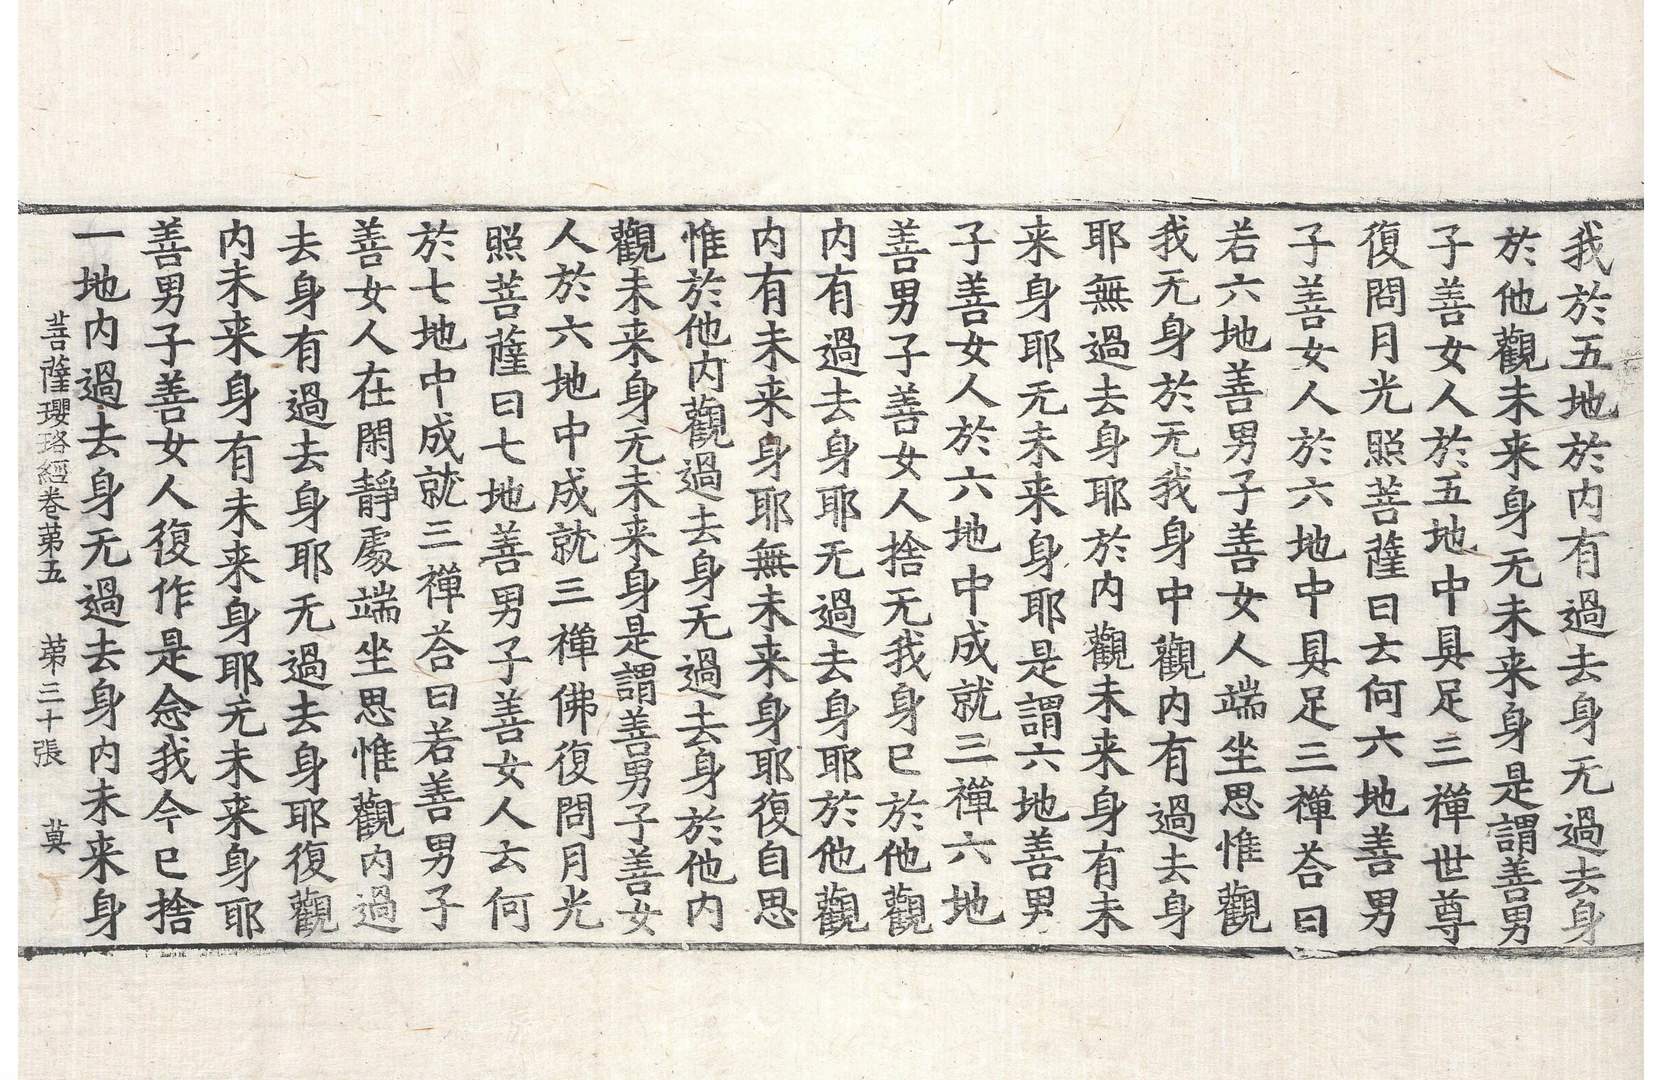 我於五地於内有過去身无過去身
於他觀未来身无未来身是謂善男
子善女人於五地中具足三禪世尊
復問月光照菩薩曰云何六地善男
子善女人於六地中具足三禪荅曰
若六地善男子善女人端坐思惟觀
我无身於无我身中觀内有過去身
耶無過去身耶於内觀未来身有未
来身耶无未来身耶是謂六地善男
子善女人於六地中成就三禪六地
善男子善女人捨无我身已於他觀
内有過去身耶无過去身耶於他觀
内有未来身耶無未来身耶復自思
惟於他内觀過去身无過去身於他内
觀未来身无未来身是謂善男子善女
人於六地中成就三禪佛復問月光
照菩薩曰七地善男子善女人云何
於七地中成就三禪荅曰若善男子
善女人在閑靜處端坐思惟觀内過
去身有過去身耶无過去身耶復觀
内未来身有未来身耶无未来身耶
善男子善女人復作是念我今已捨
一地内過去身无過去身内未来身
菩薩瓔珞經卷第五 第三十張 莫